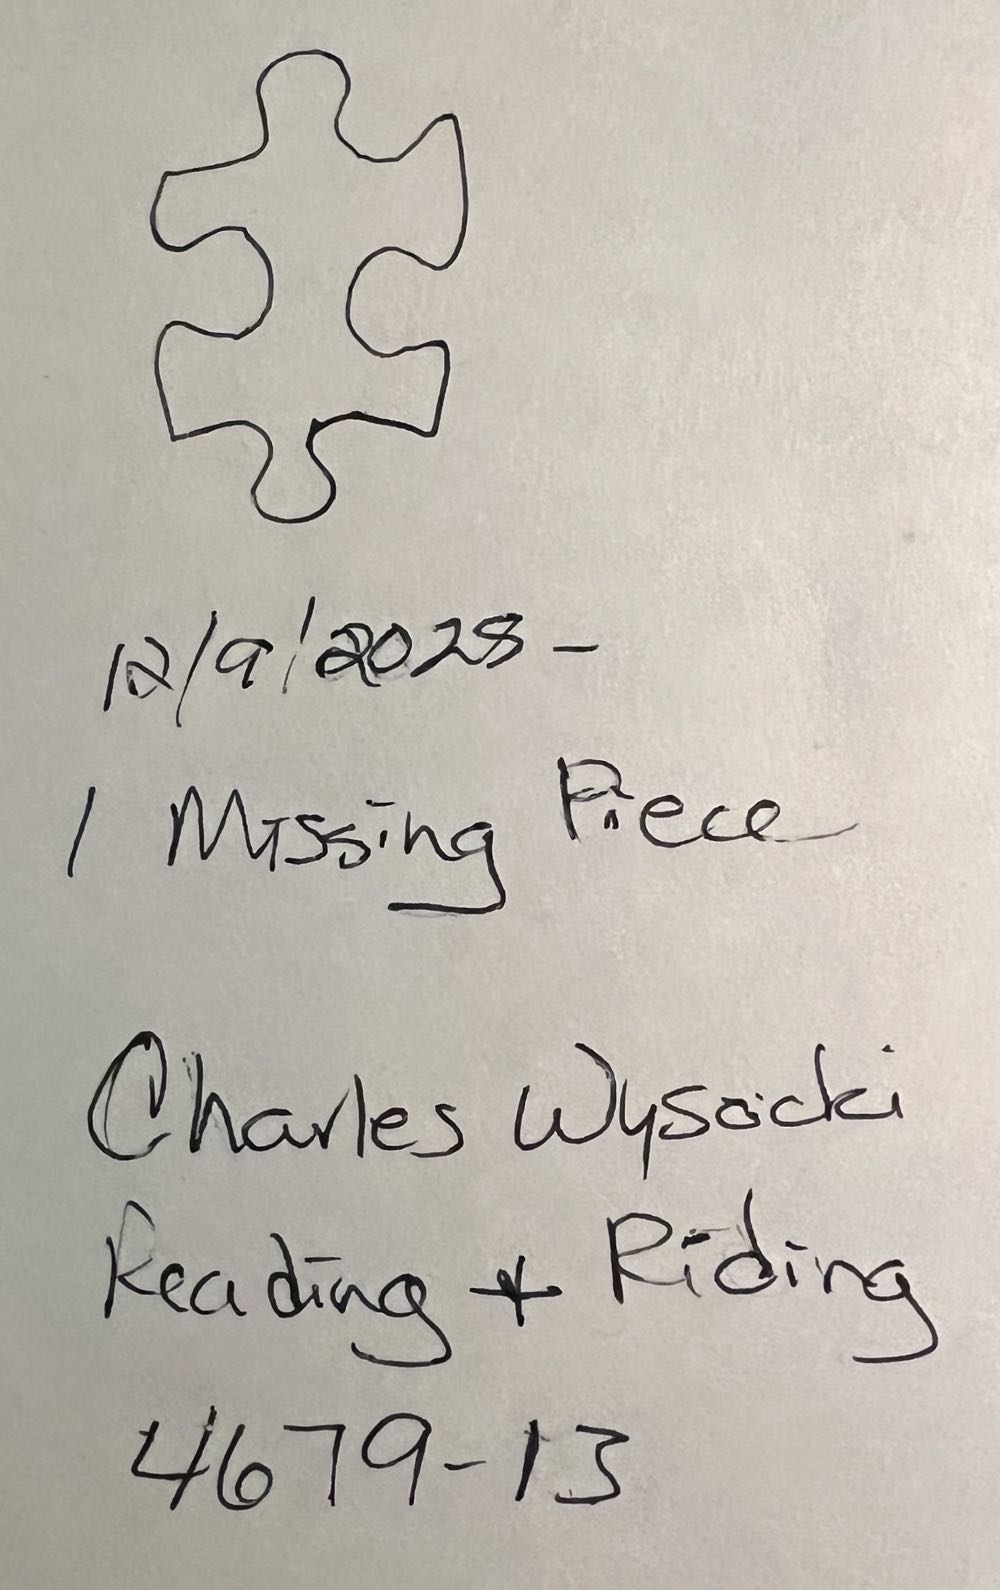 12/9/2025 -
1 Missing Piece
Charles Wysocki
Reading + Riding
4679-13